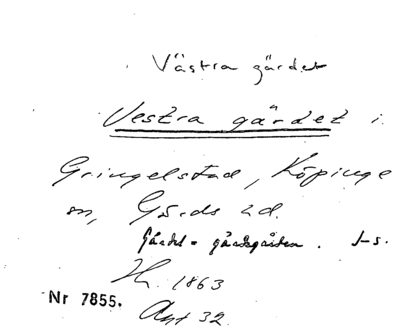 Västra gärdet
Vestra gärdet i
Gringelstad, Köpinge
sn, Gärds hd.
Gärdet = gärdsgården. J-s.
Hr. 1863
Nr 7855.
Ant 32.